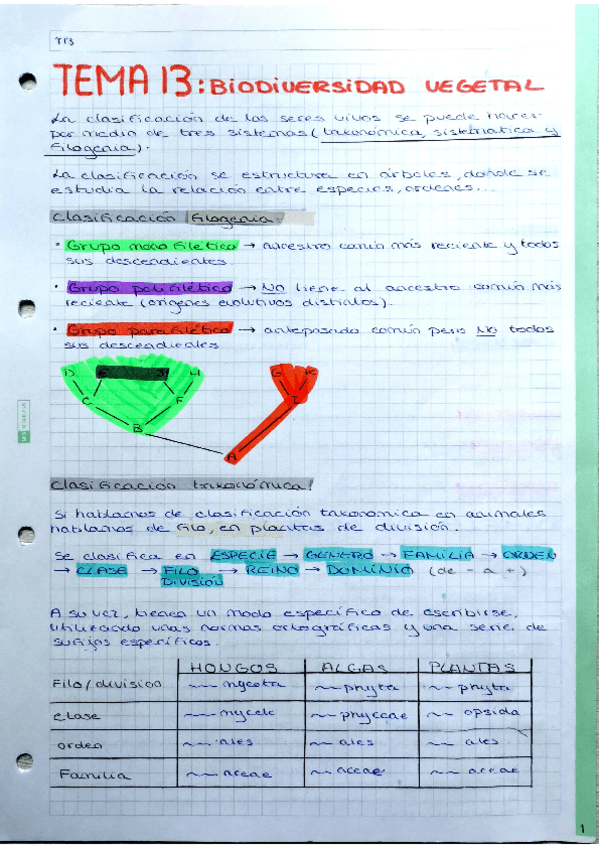 TEMA 13: BIODIVERSIDAD VEGETAL
La clasificación de los seres vivos se puede hacer
por medio de tres sistemas (taxonómica, sistematica y
Filogenia).
La clasificación se estructura en árboles, donde se
estudia la relación entre especies, ordenes...
Clasificación Filogenia.
· Grupo monofilético → ancestro común más reciente y todos
sus descendientes
· Grupo polifilético → NO tiene al ancestro común más
reciente (orígenes evolutivos distintos).
· Grupo parafilético → antepasado común pero NO todos
sus descendientes
D E H G K
C F I
B
A
Clasificación taxonómica!
Si hablamos de clasificación taxonomica en animales
hablamos de filo, en plantas de división.
Se clasifica en ESPECIE → GENERO → FAMILIA → ORDEN
→ CLASE → FILO → REINO → DOMINIO (de - a +)
DIVISIÓN
A su vez, tienen un modo específico de escribirse,
utilizando unas normas ortográficas y una serie de
sufijos específicos.
HONGOS ALGAS PLANTAS
Filo/división ~~ mycota ~~ phyta ~~ phyta
Clase ~~ mycete ~~ phyceae ~~ opsida
orden ~~ ales ~~ ales ~~ ales
Familia ~~ aceae ~~ aceae ~~ aceae
1